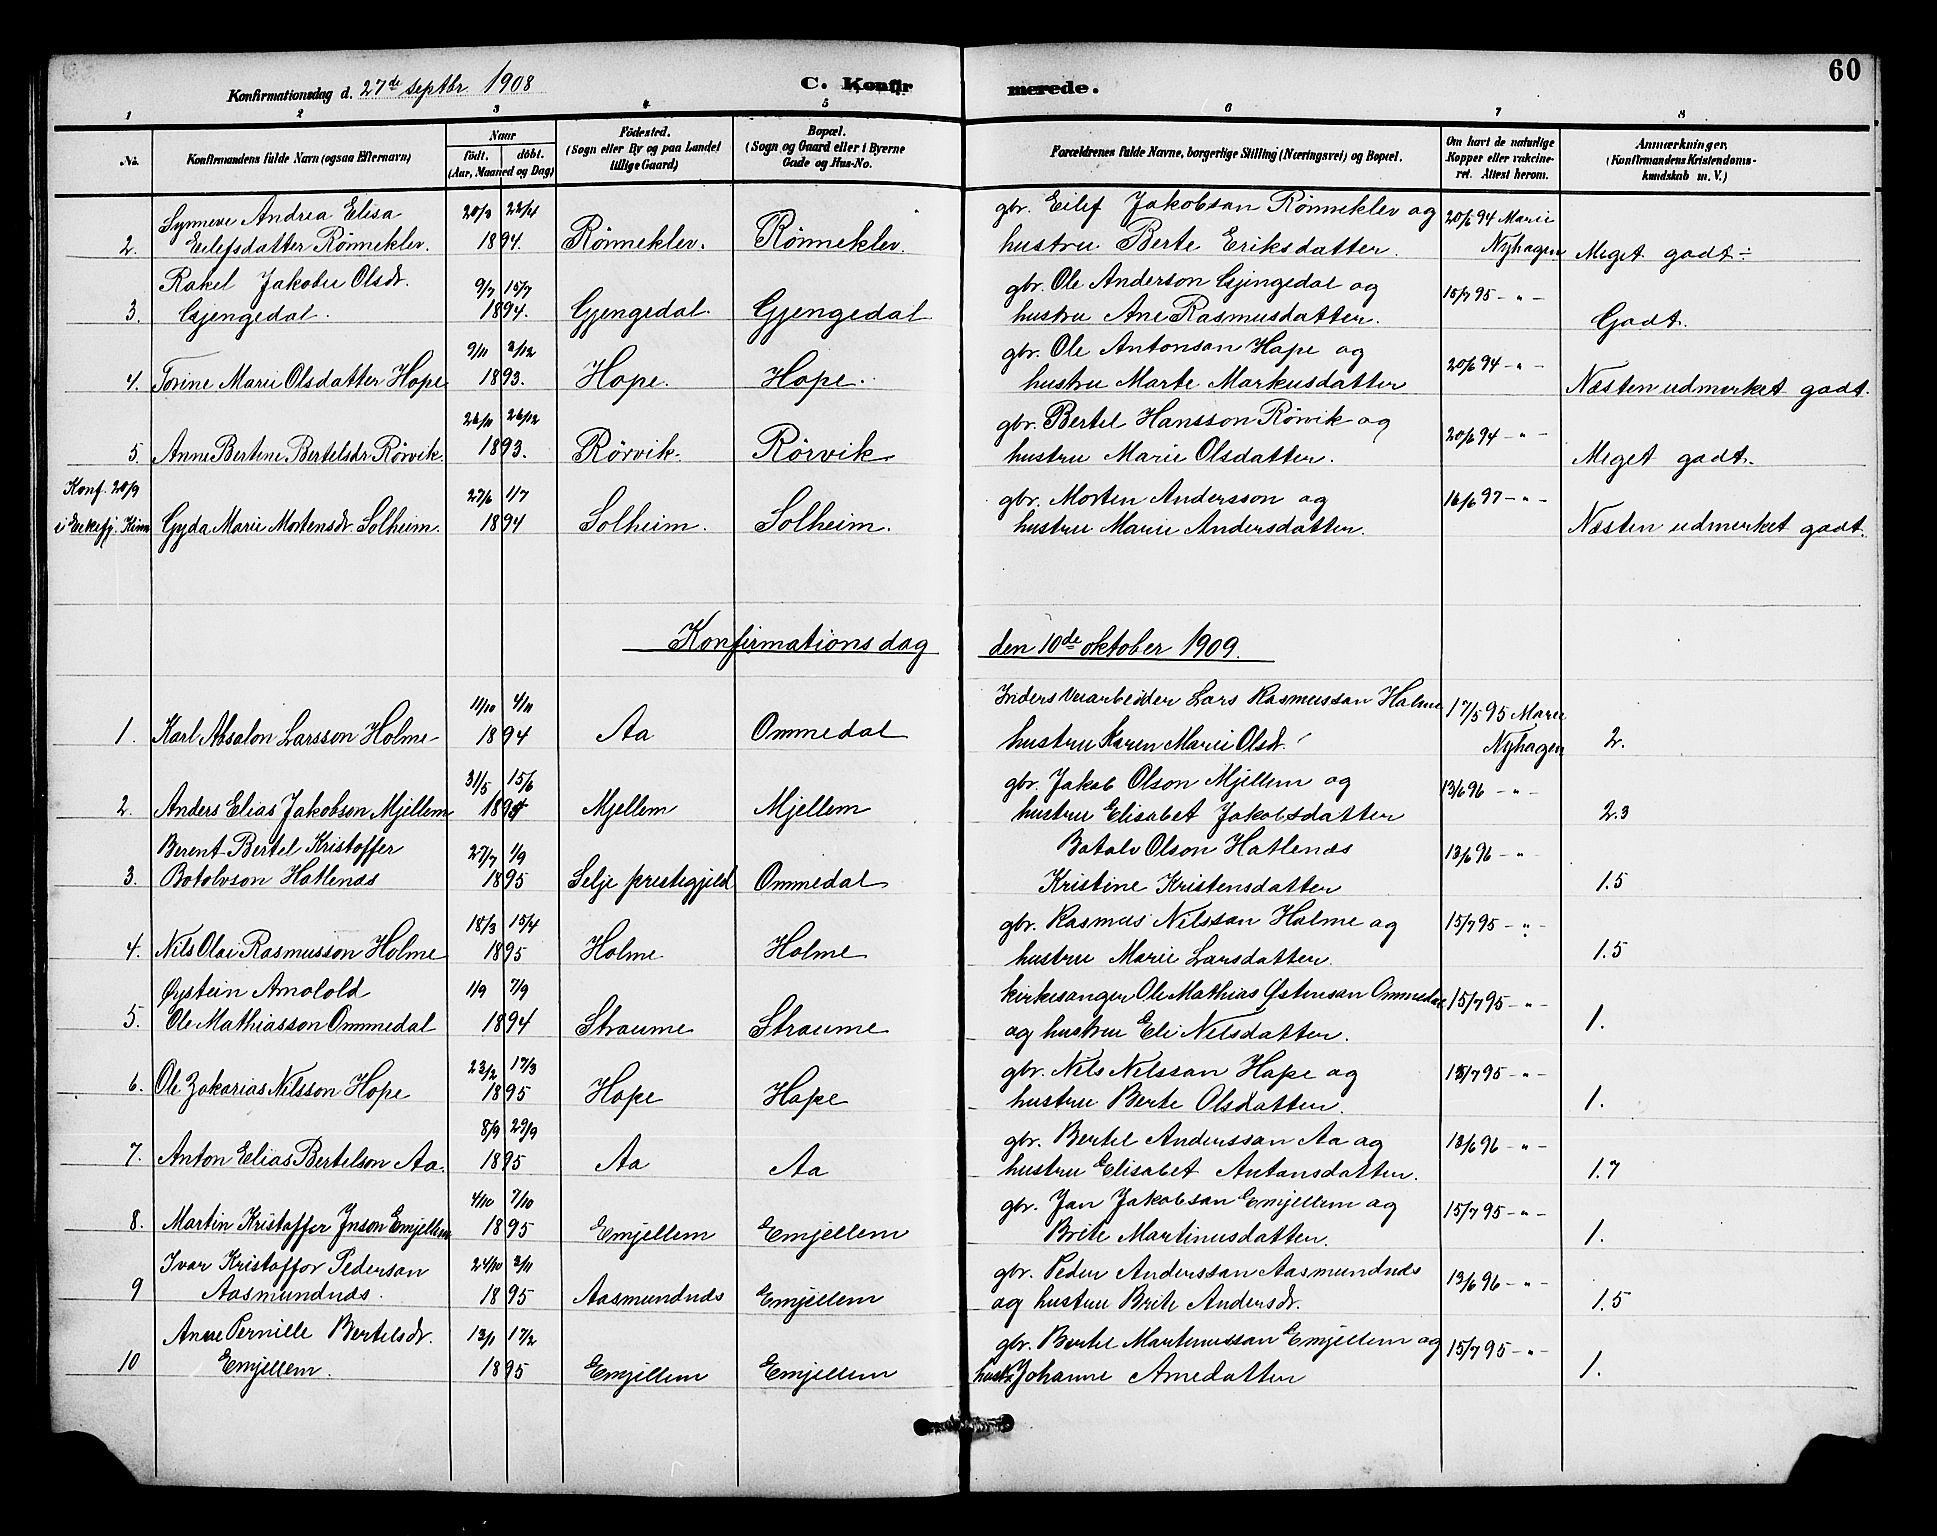 60
Konfirmationsdag d. 27de septbr 1908
C. Konfirmerede.
1 2 3 4 5 6 7 8
No. Konfirmandens fulde Navn (ogsaa Efternavn) Naar födt. döbt. (Aar, Maaned og Dag) Födested. (Sogn eller By og paa Landet tillige Gaard) Bopæl. (Sogn og Gaard eller i Byerne Gade og Hus-No. Forældrenes fulde Navne, borgerlige Stilling (Næringsvei) og Bopæl. Om havt de naturlige Kopper eller vakcineret. Attest herom. Anmærkninger, (Konfirmandens Kristendomskundskab m. V.)
Synneve Andrea Elisa 20/3 22/4 gbr. Eilef Jakobsan Rönneklev og 20/6 94 Marie
2. Eilefsdatter Rönneklev. 1894. Rönneklev. Rönneklev. hustru Berte Eriksdatter. Nyhagen Meget godt ÷
Rakel Jakobie Olsdr. 9/7 15/7 gbr. Ole Anderson Gjengedal og 15/7 95 - " -
3. Gjengedal. 1894. Gjengedal. Gjengedal hustru Ane Rasmusdatter. Godt.
9/11 3/12 gbr. Ole Antonsan Hope og 20/6 94 - " -
4. Torine Marie Olsdatter Hope 1893. Hope. Hope. hustru Marte Markusdatter Næsten udmerket godt.
26/11 26/12 gbr. Bertel Hansson Rörvik og 20/6 94 - " -
5. Anne Bertine Bertelsdr. Rörvik. 1893. Rörvik. Rörvik hustru Marie Olsdatter. Meget godt.
Konf. 20/9 27/6 1/7 gbr. Morten Andersson og 16/6 97 - " -
i Eikefj. Kinn Gyda Marie Mortensdr. Solheim. 1894 Solheim. Solheim. hustru Marie Andersdatter. Næsten udmerket godt.
Konfirmationsdag den 10de oktober 1909.
11/10 4/11 Lars Rasmussan Holme 17/5 95 Marie
1. Karl Absalon Larsson Holme 1894 Aa Ommedal hustru Karen Marie Olsdr. Nyhagen 2.
31/5 15/6 gbr. Jakob Olson Mjellem og 13/6 96 - " -
2. Anders Elias Jakobson Mjellem Mjellem Mjellem hustru Elisabet Jakobsdatter 2.3
Berent Bertel Kristoffer 27/7 1/9 Botolv Olson Hatlenæs 13/6 96 - " -
3. Botolvson Hatlenæs 1895 Selje prestegjeld Ommedal Kristine Kristensdatter 1.5
18/3 15/4 gbr. Rasmus Nilssan Holme og 15/7 95 - " -
4. Nils Olai Rasmusson Holme 1895 Holme Holme hustru Marie Larsdatter. 1.5
Øystein Arnolold 1/9 7/9 kirkesanger Ole Mathias Østensan Ommedal 15/7 95 - " -
5. Ole Mathiasson Ommedal 1894 Straume Straume og hustru Eli Nilsdatter. 1.
23/2 17/3 gbr. Nils Nilssan Hope og 15/7 95 - " -
6. Ole Zakarias Nilsson Hope 1895 Hope Hope hustru Berte Olsdatter. 1.
8/9 29/9 gbr. Bertel Anderssan Aa og 13/6 96 - " -
7. Anton Elias Bertelson Aa. 1895 Aa Aa hustru Elisabet Antonsdatter. 1.7
4/10 7/10 gbr. Jan Jakobsan Emjellem og 15/7 95 - " -
8. Martin Kristoffer Jnson Emjellem 1895 Emjellem Emjellem Brite Martinusdatter. 1.
Ivar Kristoffor Pedersan 24/10 3/11 gbr. Peder Anderssan Aasmundnæs 13/6 96 - " -
9 Aasmundnæs. 1895 Aasmundnæs Emjellem og hustru Brite Andersdr. 1.5
Anne Pernille Bertelsdr. 13/1 17/2 gbr. Bertel Martinussan Emjellem og 15/7 95 - " -
10 Emjellem. 1895 Emjellem Emjellem Johanne Arnedatter 1.